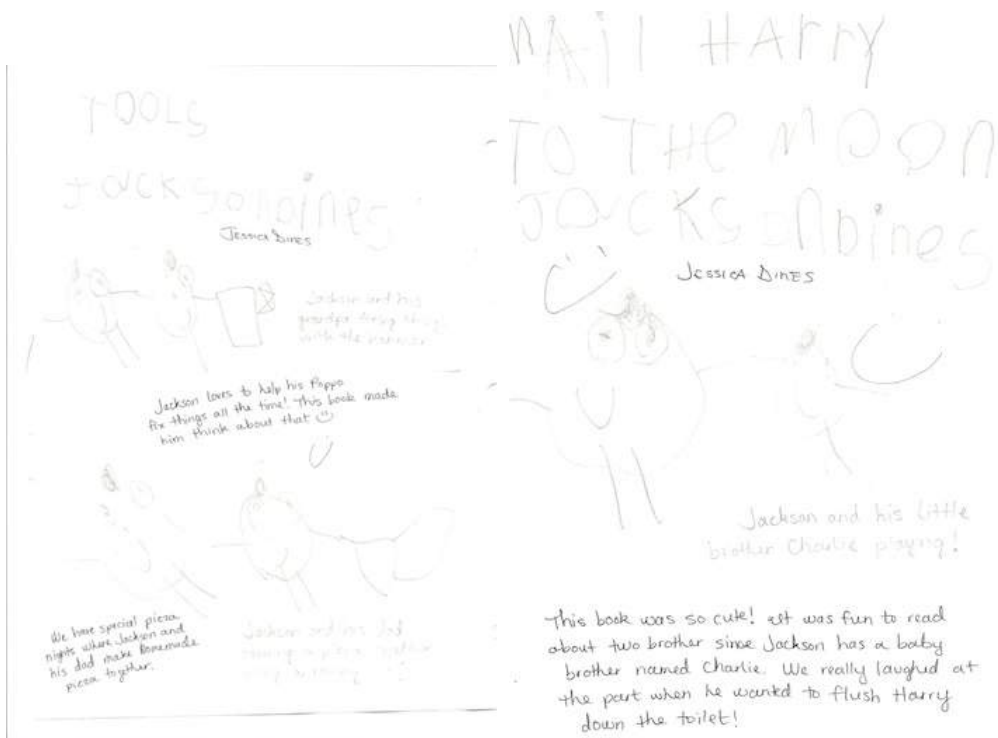 TOOLS
JACKSON DINES
JESSICA DINES
Jackson and his
grandpa fixing things
with the hammer
Jackson loves to help his Poppa
fix things all the time! This book made
him think about that
We have special pizza
nights where Jackson and
his dad make homemade
pizza together.
Jackson and his dad
MAIL HARRY
TO THE MOON
JACKSON DINES
JESSICA DINES
Jackson and his little
brother Charlie playing!
This book was so cute! It was fun to read
about two brother since Jackson has a baby
brother named Charlie. We really laughed at
the part when he wanted to flush Harry
down the toilet!